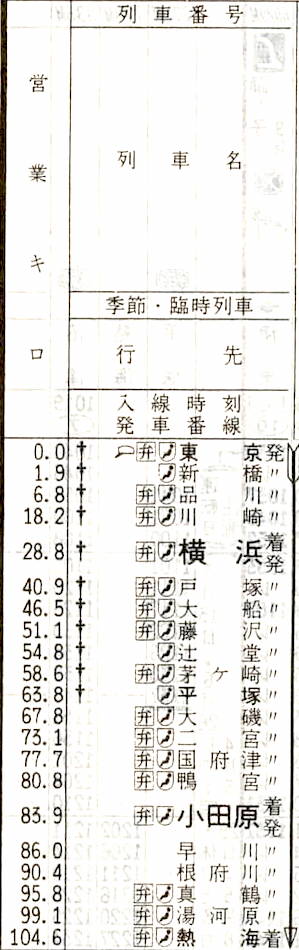 列車番号
営業キロ
列車名
季節・臨時列車
行先
入線時刻
発車番線
0.0 † 弁 東京 発
1.9 † 新橋 〃
6.8 † 弁 品川 〃
18.2 † 弁 川崎 〃
28.8 † 弁 横浜 着発
40.9 † 弁 戸塚 〃
46.5 † 弁 大船 〃
51.1 † 弁 藤沢 〃
54.8 † 辻堂 〃
58.6 † 弁 茅ケ崎 〃
63.8 † 平塚 〃
67.8 弁 大磯 〃
73.1 弁 二宮 〃
77.7 弁 国府津 〃
80.8 弁 鴨宮 〃
83.9 弁 小田原 着発
86.0 早川 〃
90.4 根府川 〃
95.8 弁 真鶴 〃
99.1 弁 湯河原 〃
104.6 弁 熱海 着